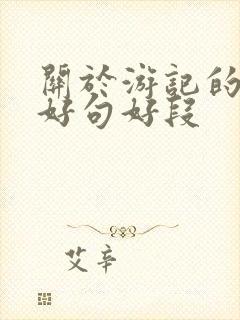 關於游記的
好句好段
艾辛